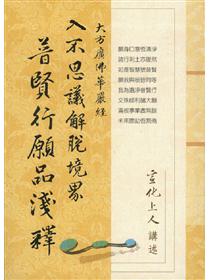 願身口意恒清淨
諸行剎土亦復然
如是智慧號普賢
願我與彼皆同等
我為遍淨普賢行
文殊師利諸大願
滿彼事業盡無餘
未來際劫恒無倦
大方廣佛華嚴經
入不思議解脫境界
普賢行願品淺釋
宣化上人 講述